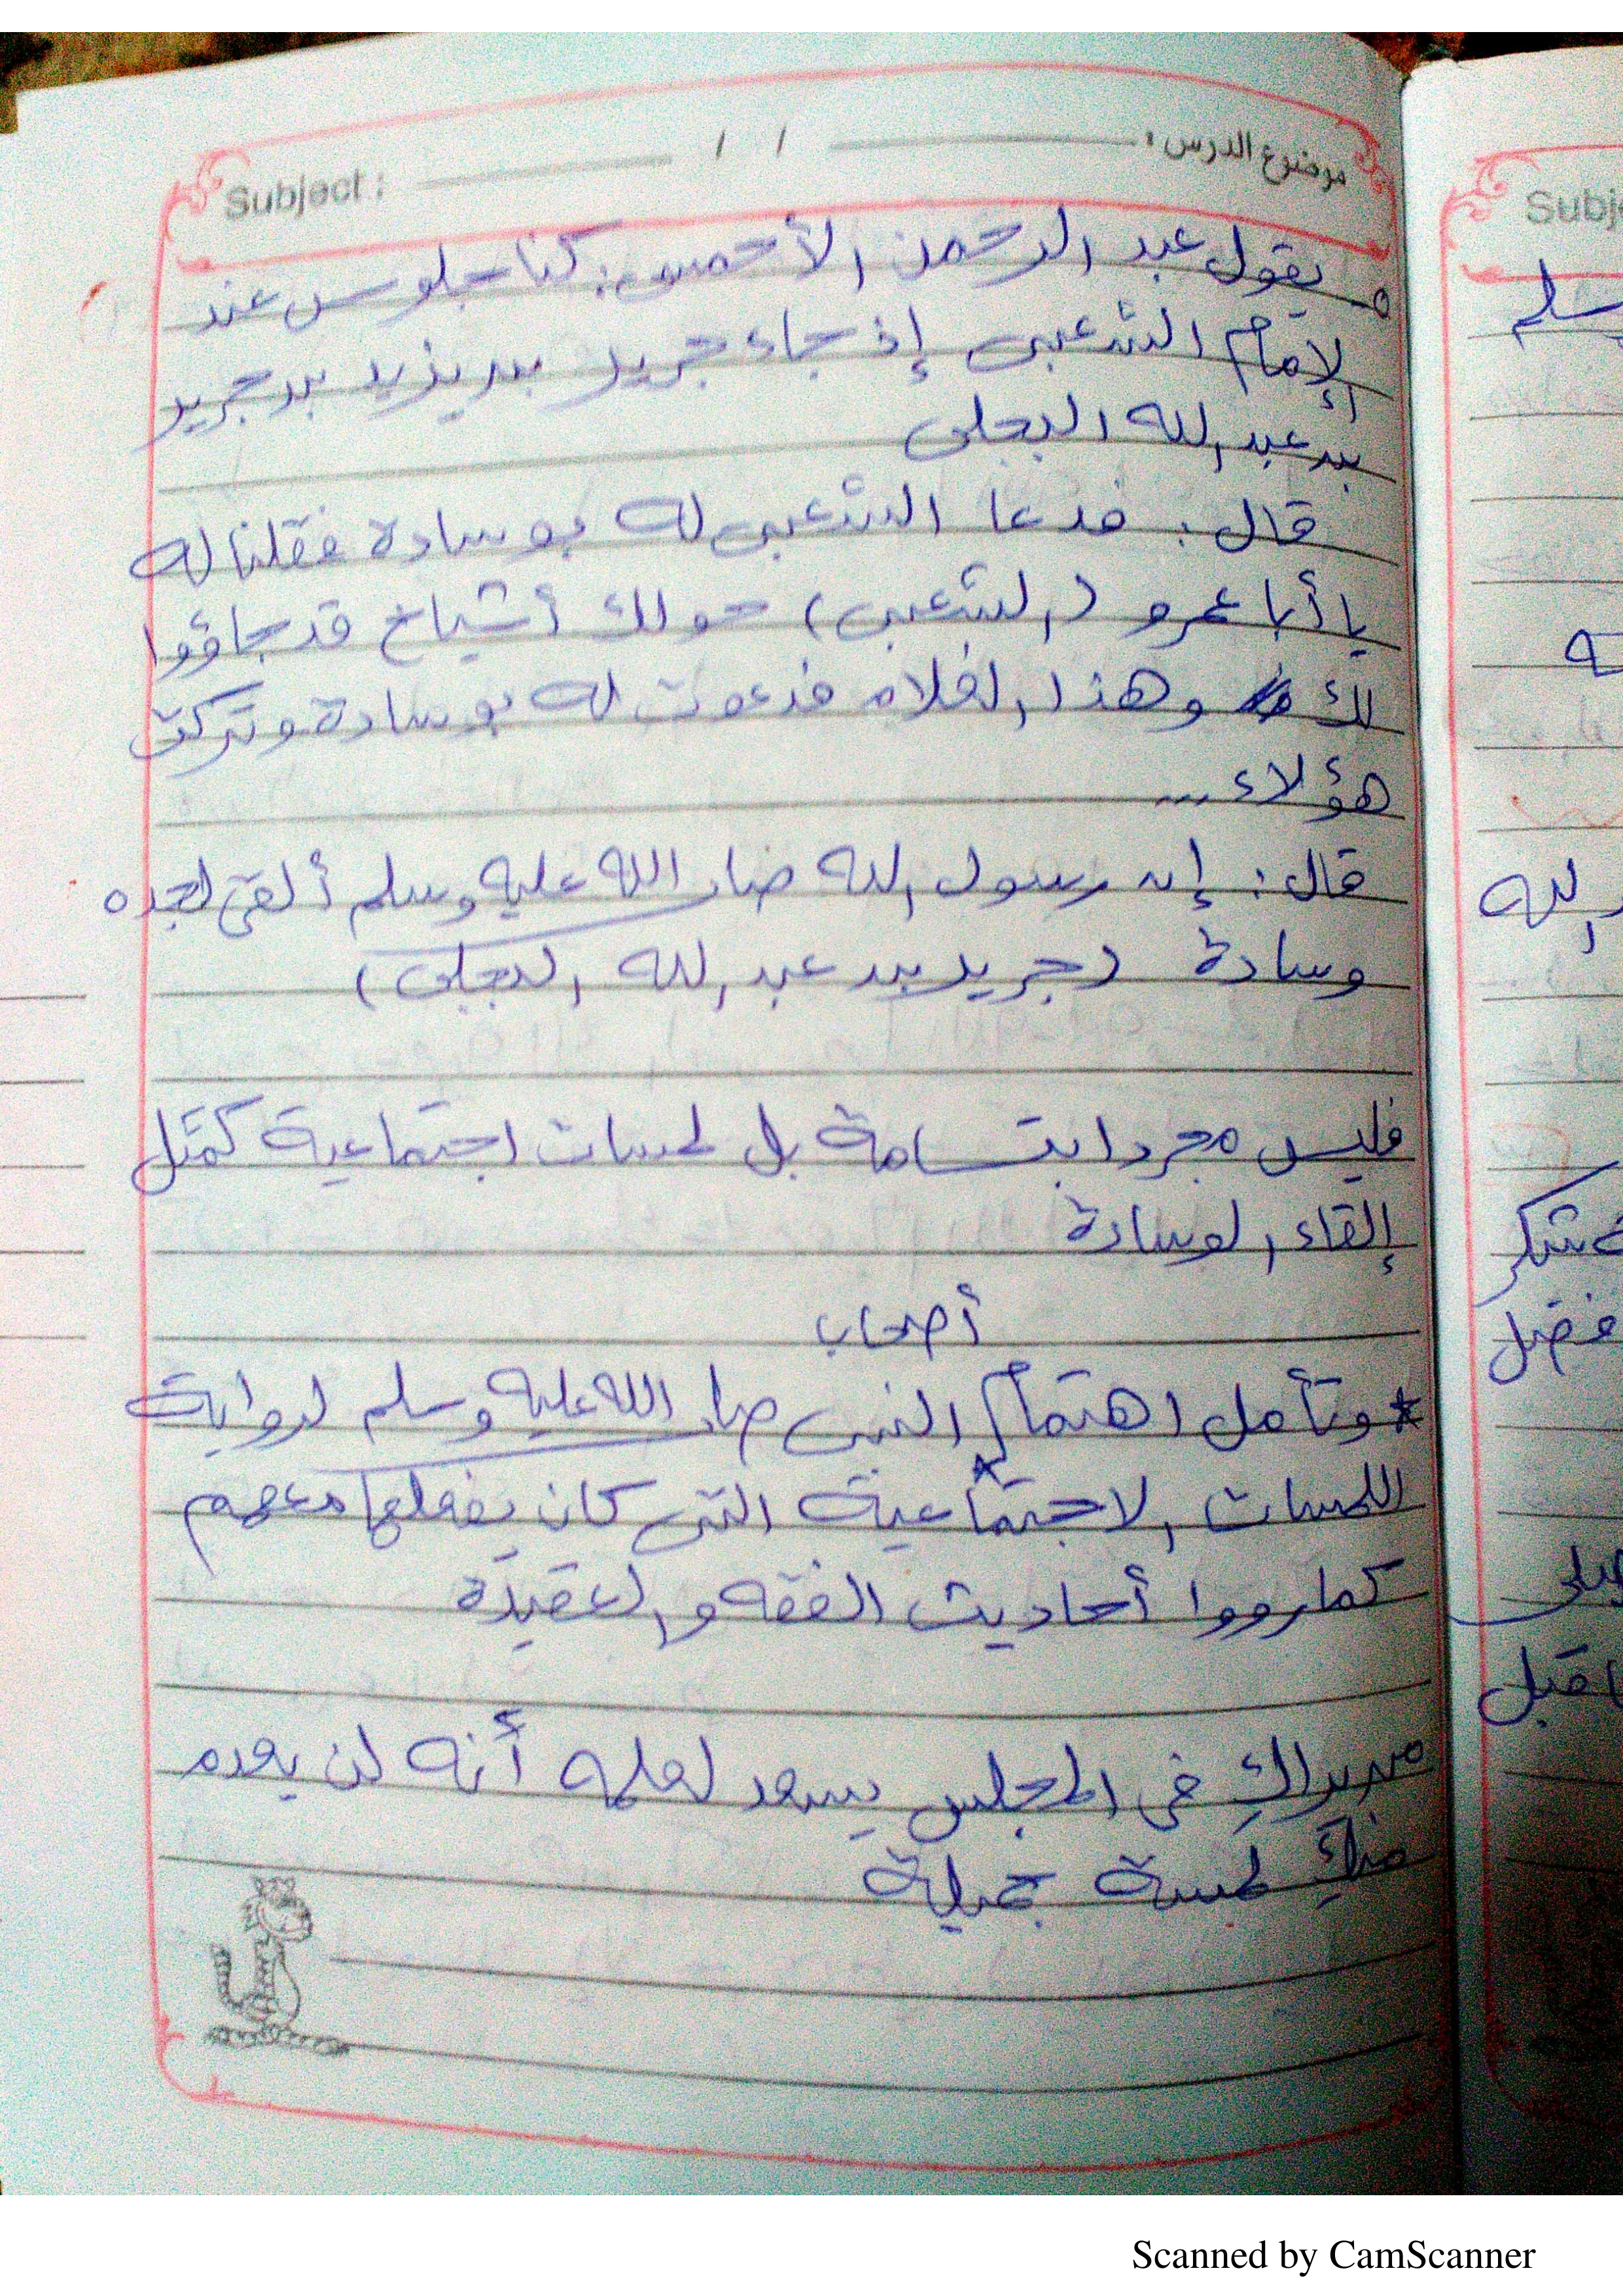 Subject : / / موضوع الدرس :
يقول عبد الرحمن الأحمسى : كنا جلوس عند
الإمام الشعبى إذ جاء جرير بن يزيد بن جرير
بن عبد الله البجلى
قال : فدعا الشعبى له بوسادة فقلنا له
يا أبا عمرو (الشعبى) حولك أشياخ قد جاؤوا
لك وهذا الغلام فدعوت له بوسادة وتركت
هؤلاء ...
قال : إن رسول الله صلى الله عليه وسلم ألقى لجده
وسادة (جرير بن عبد الله البجلى)
فليس مجرد ابتسامة بل لمسات اجتماعية كمثل
إلقاء الوسادة
أصحاب
* وتأمل اهتمام النبى صلى الله عليه وسلم لرواية
اللمسات الاجتماعية التى كان يفعلها معهم
كما رووا أحاديث الفقه والعقيدة
من يراكِ فى المجلس يسعد لعلمه أنه لن يعدم
منكِ لمسة جميلة
Subj
سلم
ه
الله
شكر
فضل
على
قبل
Scanned by CamScanner